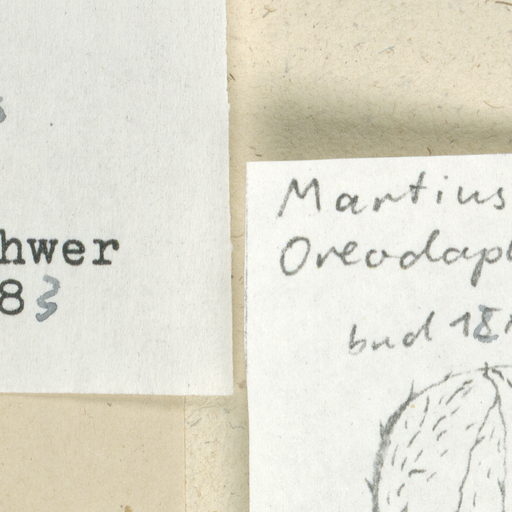 hwer
83
Martius
Oreodaph
bud